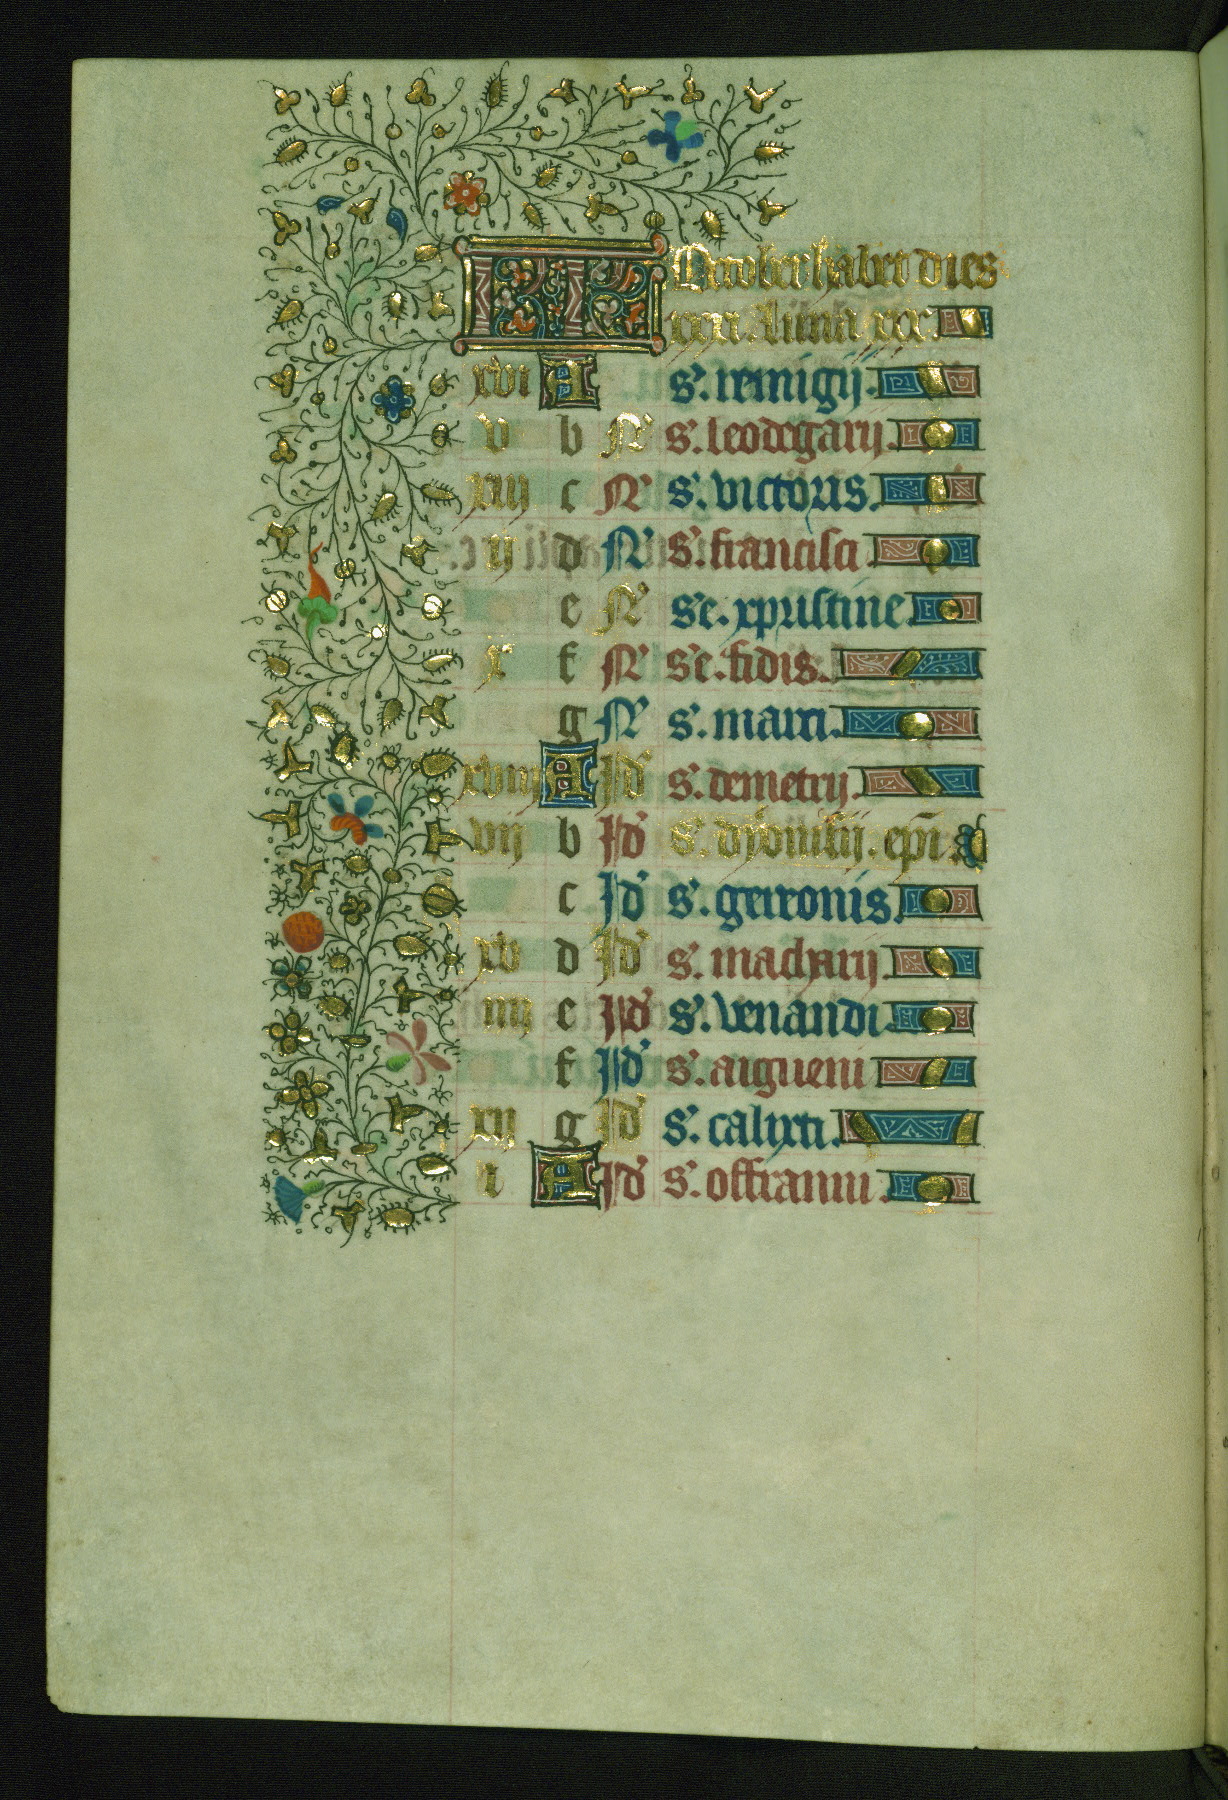 KL October habet dies
xxxi. Luna xxx.
xvi A s'. remigij.
v b N' s'. leodegarij.
xiii c N' s'. victoris.
ii d N' s'. francisci
e N' s'e. xpristine.
x f N' s'e. fidis.
g N' s'. marci.
xviii A Id' s'. demetrij.
vii b Id' s'. dyonisii. epi
c Id' s'. gereonis.
xv d Id' s'. macharij.
iiii e Id' s'. venandi
f Id' s'. aigueni
xii g Id' s'. calixti.
i A Id' s'. offranni.